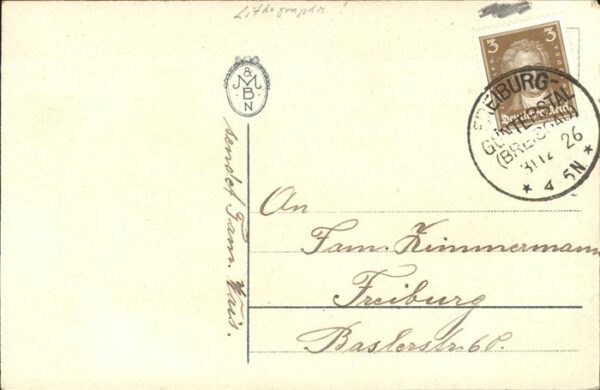 Lithographie
3 3
Deutsches Reich
FREIBURG-
GÜNTERSTAL
(BREISGAU)
31 12 26
* 4-5N *
M & M
B
N
sendet Fam. Wais.
An
Fam. Zimmermann
Freiburg
Baslerstr. 60.